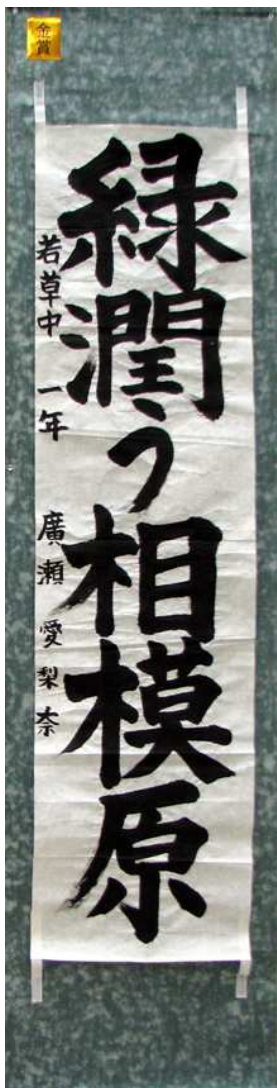 金賞
緑潤う相模原
若草中 一年 廣瀬 愛梨奈